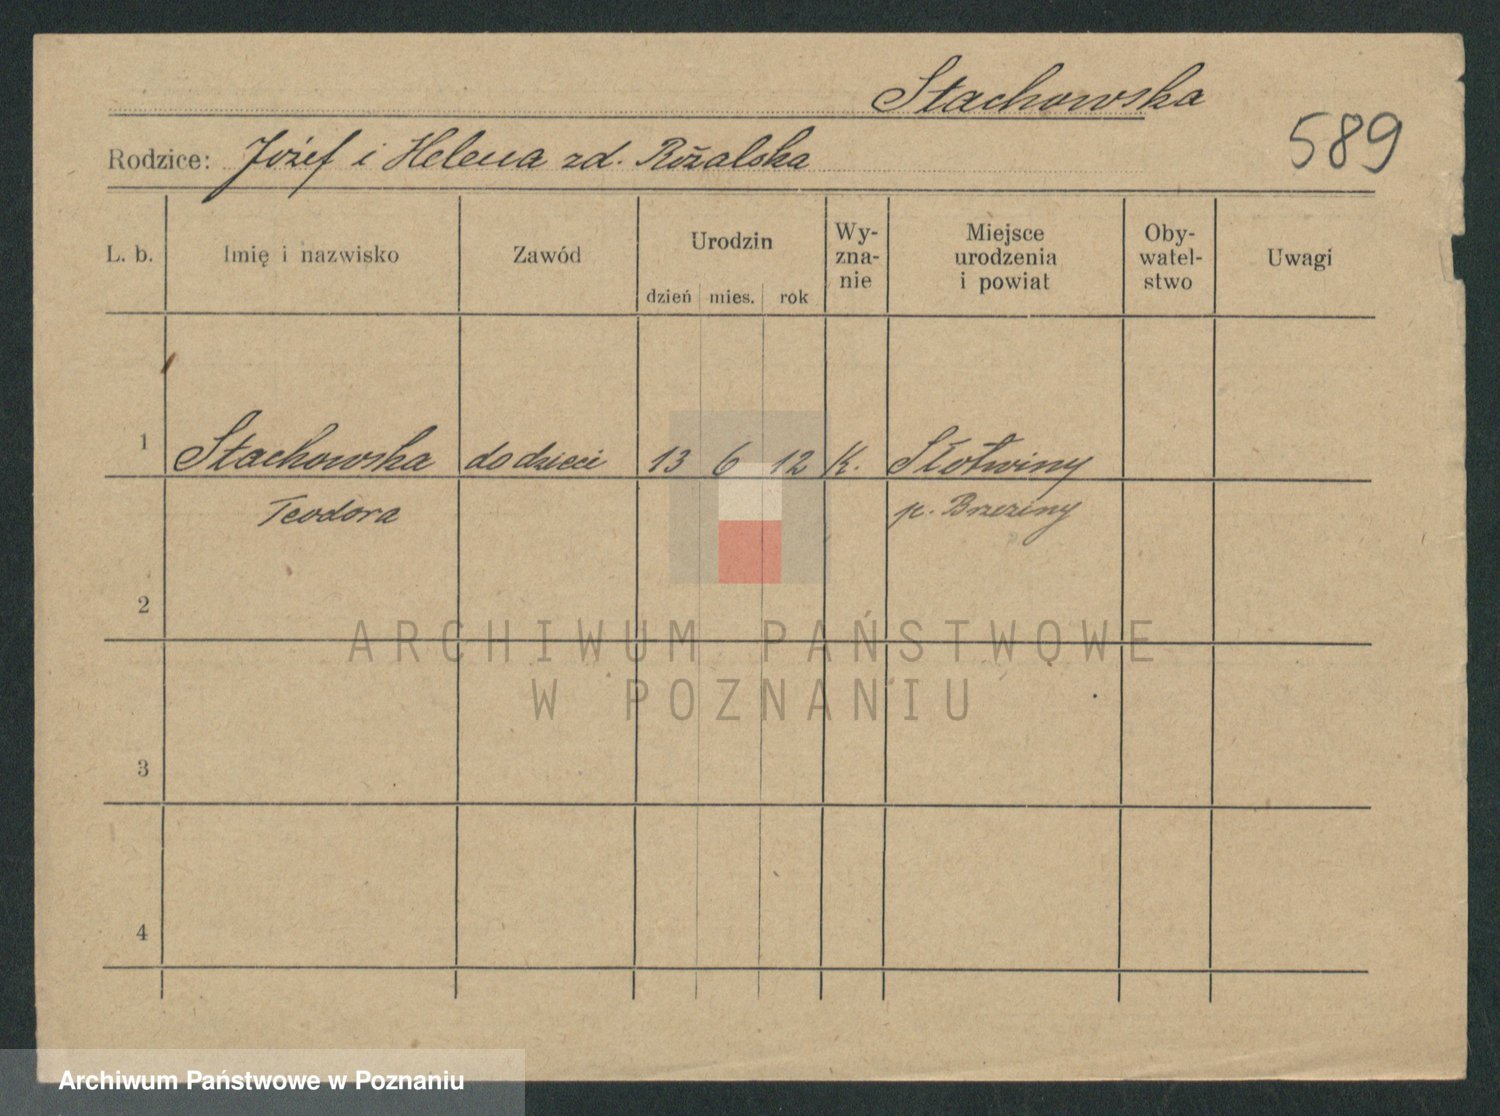 Stachowska
589
Rodzice: Józef i Helena zd. Różalska
L. b. Imię i nazwisko Zawód Urodzin dzień mies. rok Wy-zna-nie Miejsce urodzenia i powiat Oby-watel-stwo Uwagi
1 Stachowska do dzieci 13 6 12 K. Słotwiny
Teodora p. Brzeziny
2
ARCHIWUM PAŃSTWOWE
W POZNANIU
3
4
Archiwum Państwowe w Poznaniu